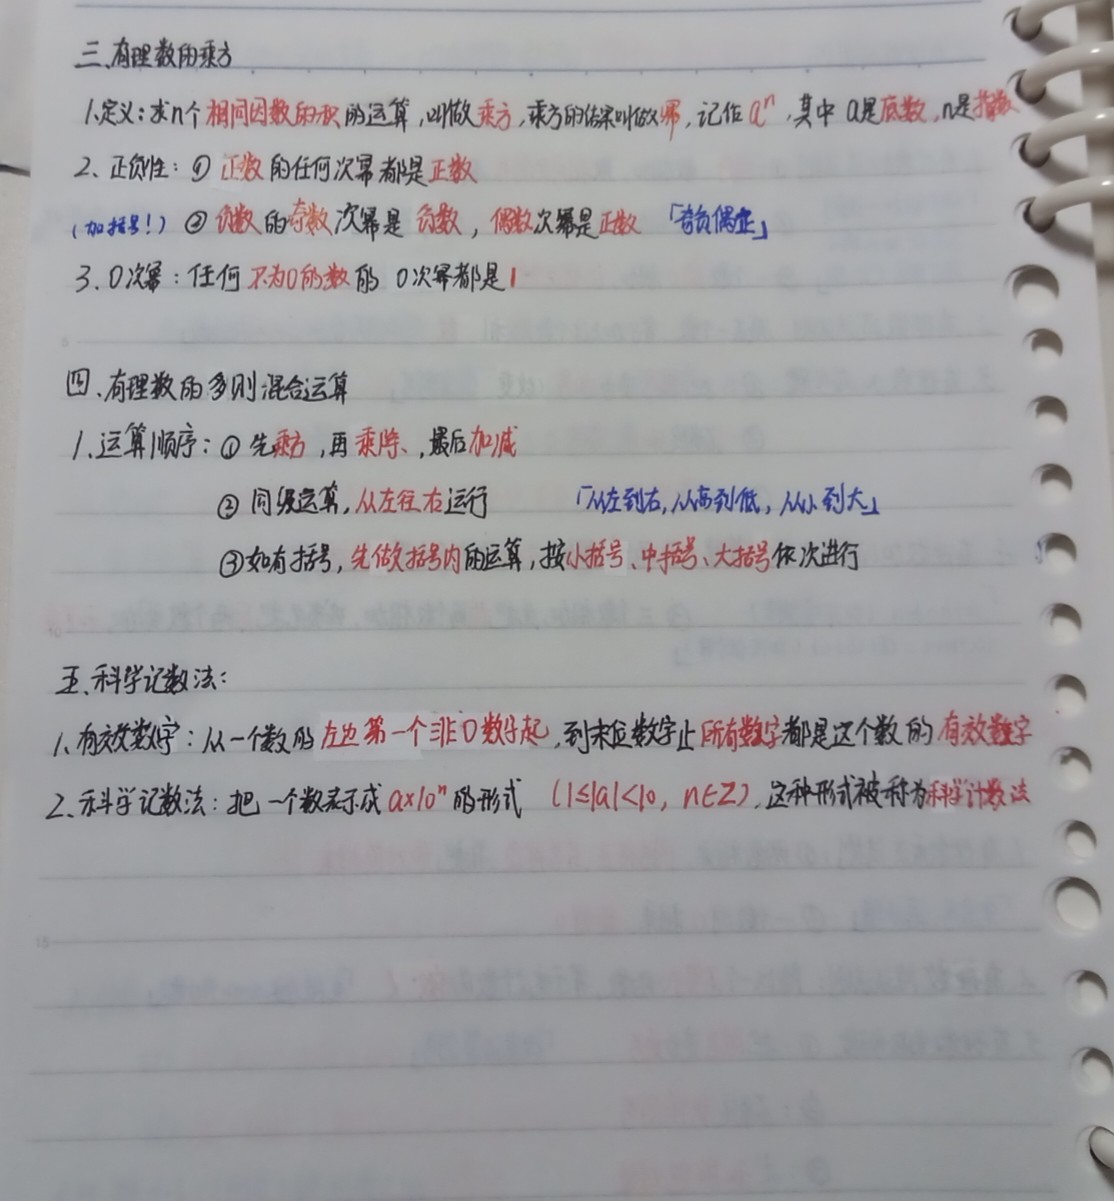 三、有理数的乘方
1.定义：求n个相同因数的积的运算，叫做乘方，乘方的结果叫做幂，记作aⁿ，其中a是底数，n是指数
2、正负性：① 正数的任何次幂都是正数
（加括号！） ② 负数的奇数次幂是负数，偶数次幂是正数 「奇负偶正」
3. 0次幂：任何不为0的数的0次幂都是1
四、有理数的多则混合运算
1.运算顺序：① 先乘方，再乘除、，最后加减
② 同级运算，从左往右运行 「从左到右，从高到低，从小到大」
③如有括号，先做括号内的运算，按小括号、中括号、大括号依次进行
五、科学记数法：
1、有效数字：从一个数的左边第一个非0数字起，到末位数字止所有数字都是这个数的有效数字
2、科学记数法：把一个数表示成a×10ⁿ的形式（1≤|a|<10，n∈Z），这种形式被称为科学计数法